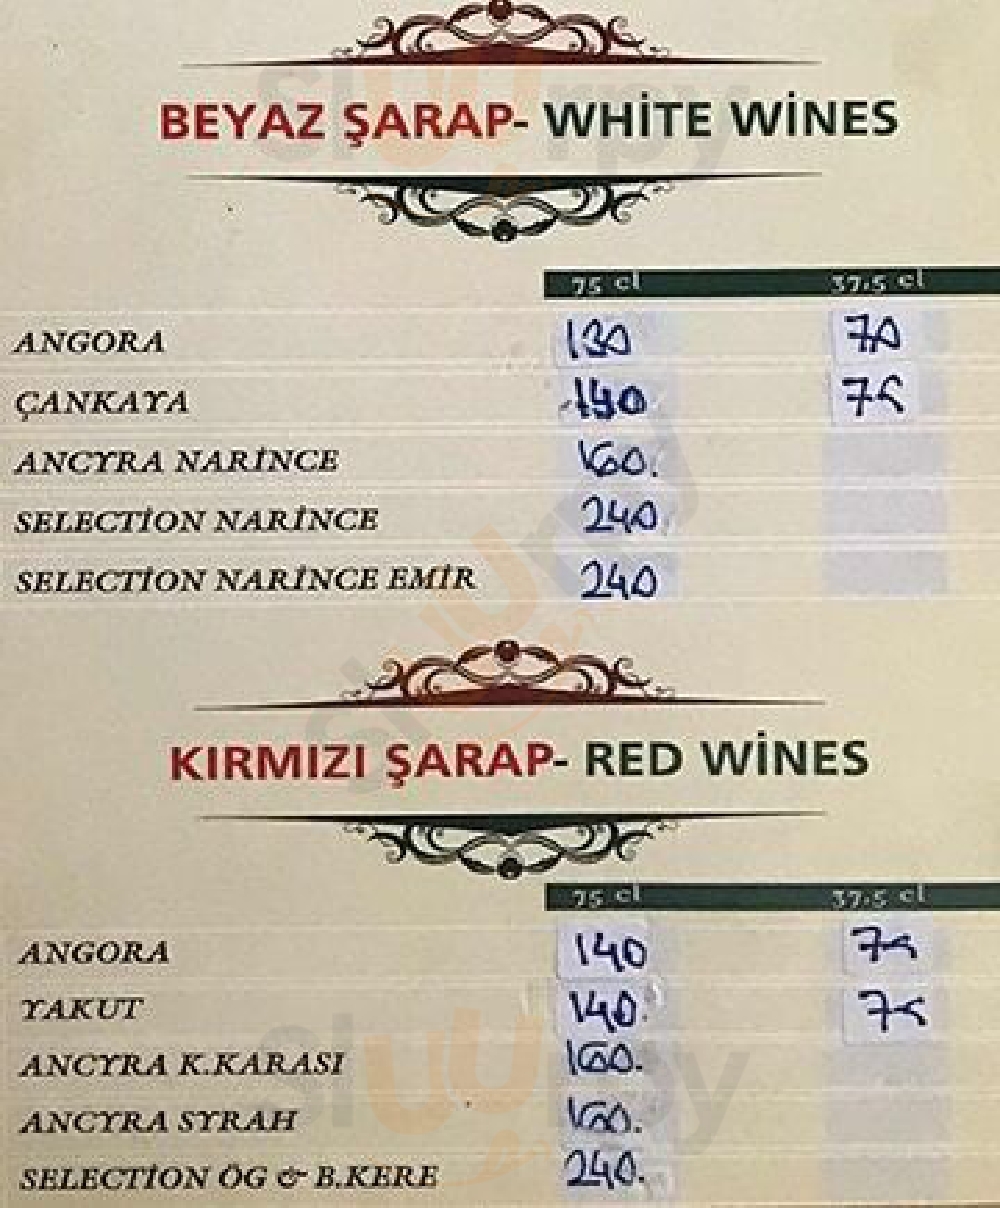 BEYAZ ŞARAP- WHİTE WİNES
75 cl 37,5 cl
ANGORA 130 70
ÇANKAYA 140 75
ANCYRA NARİNCE 160.
SELECTİON NARİNCE 240
SELECTİON NARİNCE EMİR 240
KIRMIZI ŞARAP- RED WİNES
75 cl 37,5 cl
ANGORA 140 75
YAKUT 140. 75
ANCYRA K.KARASI 160.
ANCYRA SYRAH 160.
SELECTİON ÖG & B.KERE 240.
sluurpy
sluurpy
sluurpy